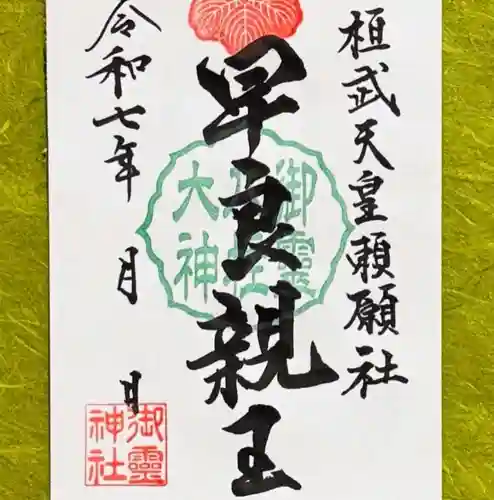 桓武天皇勅願社
早良親王
令和七年 月 日
御靈
大神
御靈
神社